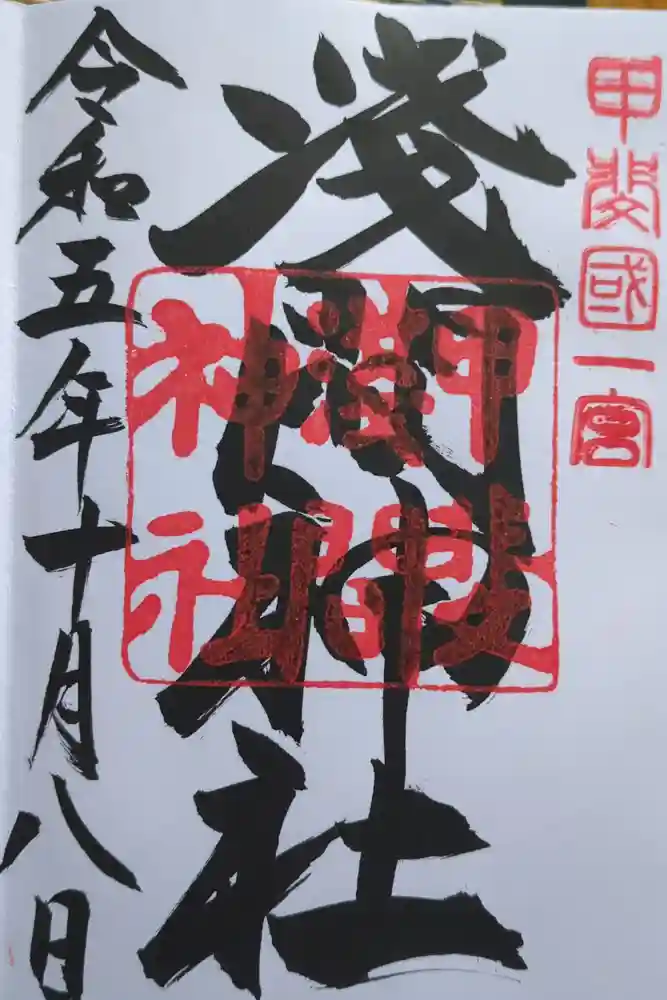 甲斐國一宮
淺間神社
甲斐
淺間
神社
令和五年十月八日